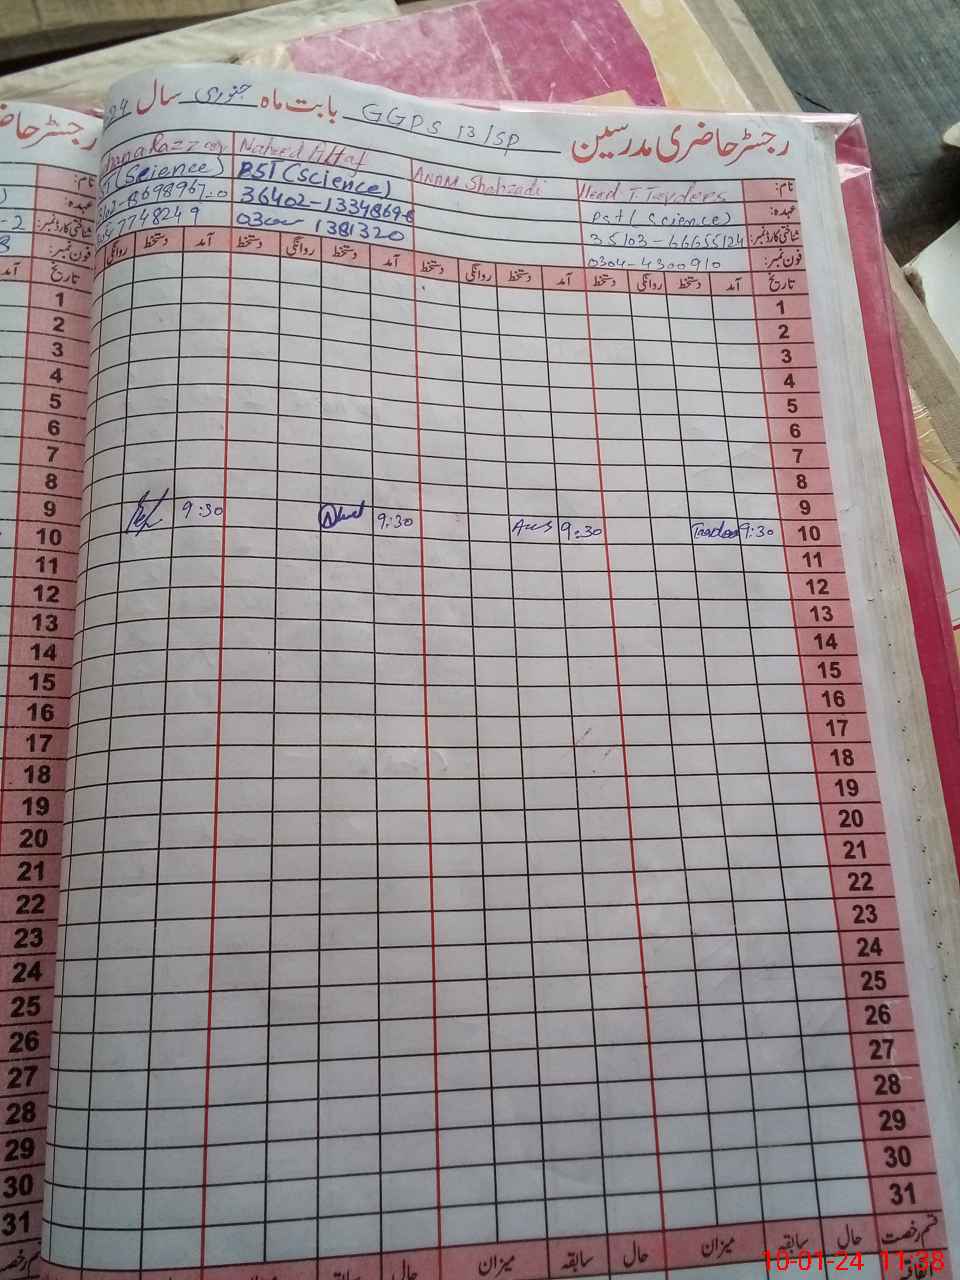 رجسٹر حاضری مدرسین GGPS 13/SP بابت ماہ جنوری سال
نام: Head T. Tayders ANAM Shahzadi Naheed Altaf
عہدہ: Pst (Science) PST (Science) (Science)
شناختی کارڈ نمبر: 35103-66655124 36402-1334869-8
فون نمبر: 0304-4300910 1381320 7748249
تاریخ آمد دستخط روانگی دستخط آمد دستخط روانگی دستخط آمد دستخط روانگی دستخط آمد دستخط روانگی
1
2
3
4
5
6
7
8
9
10 9:30 9:30 9:30 9:30
11
12
13
14
15
16
17
18
19
20
21
22
23
24
25
26
27
28
29
30
31
قسم رخصت حال سابقہ میزان حال سابقہ میزان حال سابقہ میزان
رجسٹر حاضری
نام:
عہدہ:
شناختی کارڈ نمبر:
فون نمبر:
تاریخ
1
2
3
4
5
6
7
8
9
10
11
12
13
14
15
16
17
18
19
20
21
22
23
24
25
26
27
28
29
30
31
10-01-24 11:38